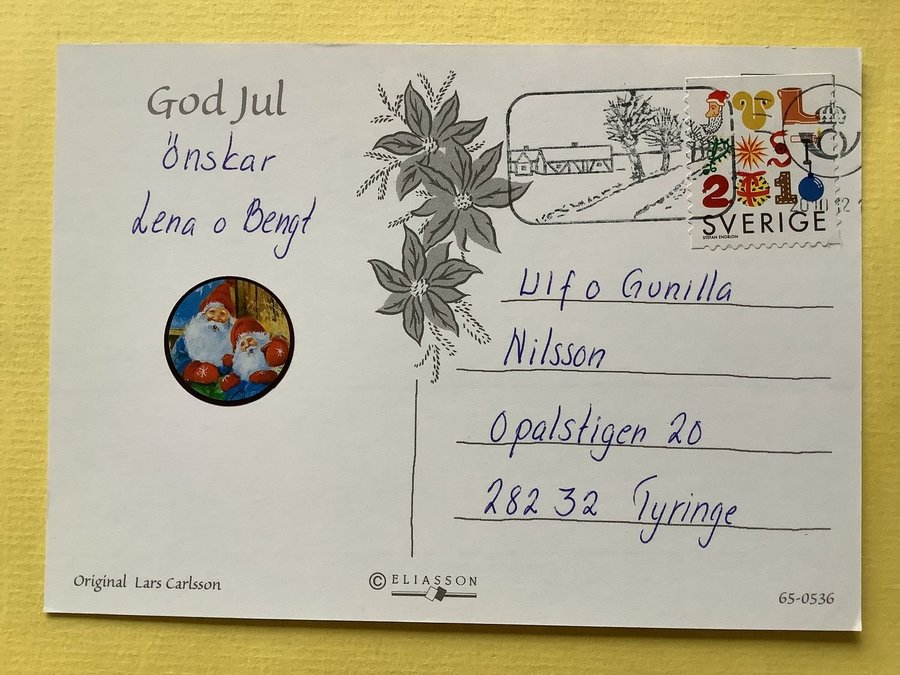 God Jul
Önskar
Lena o Bengt
SVERIGE
STEFAN ENGBLOM
Ulf o Gunilla
Nilsson
Opalstigen 20
282 32 Tyringe
Original Lars Carlsson
© ELIASSON
65-0536